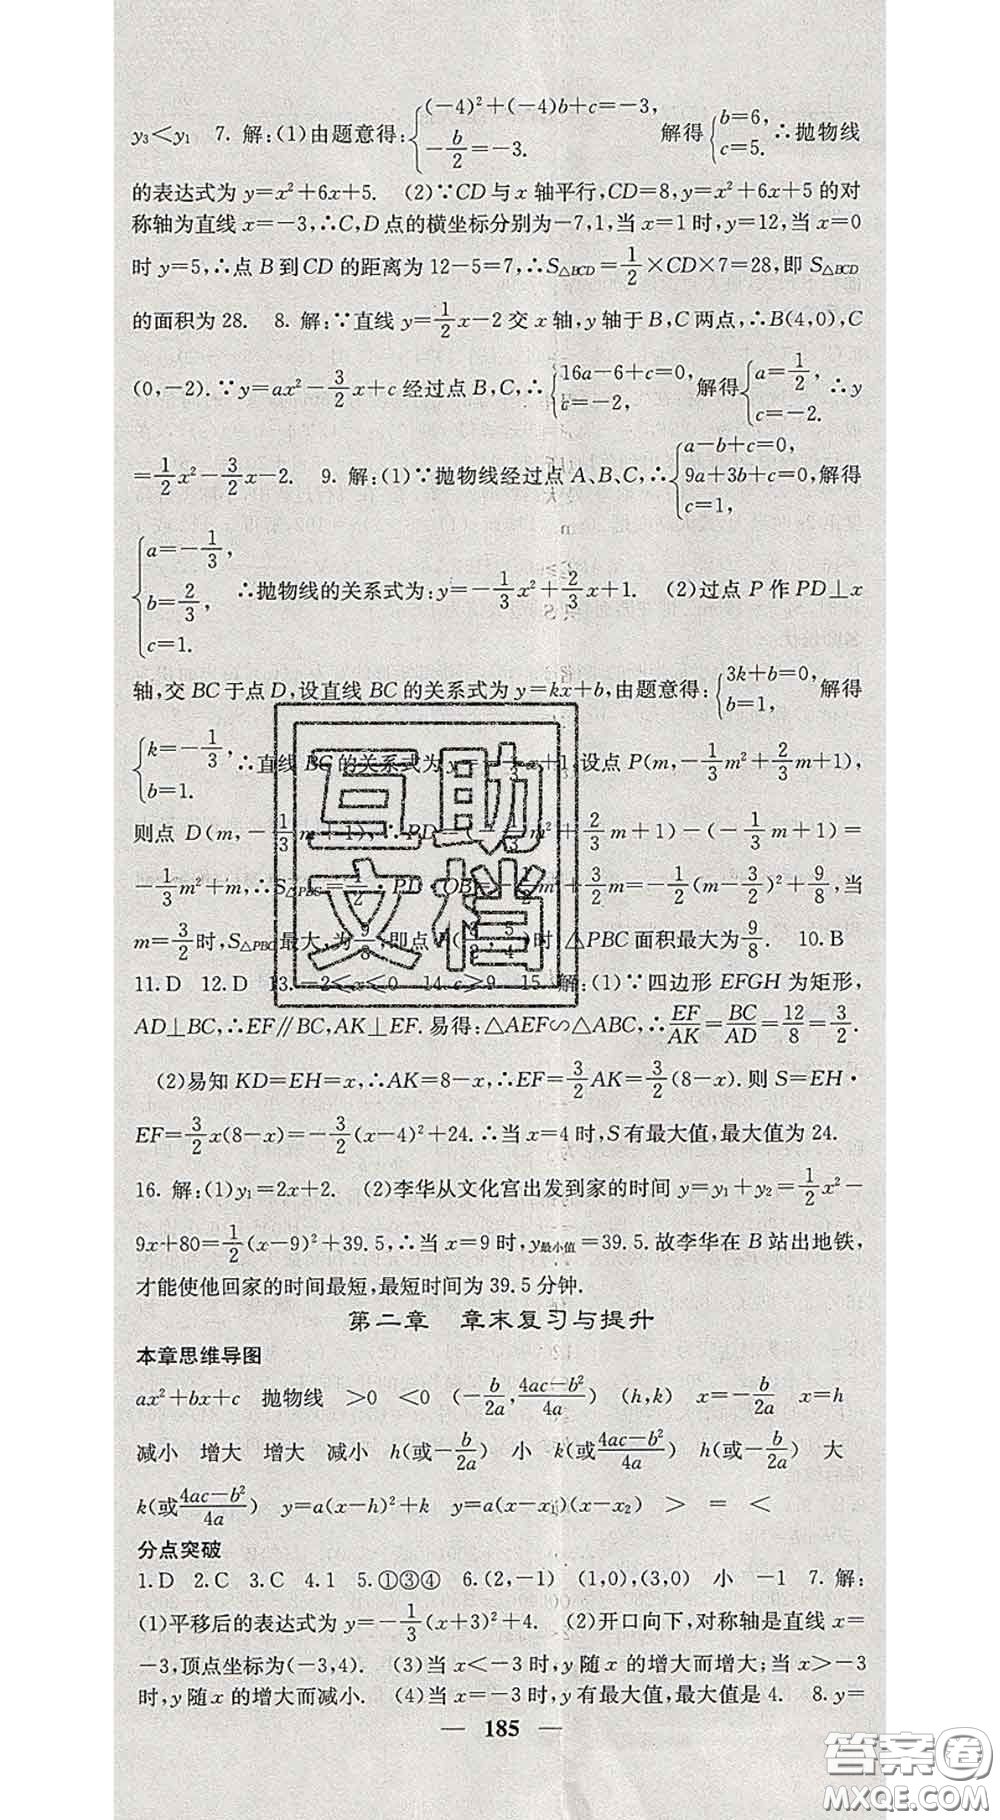 y₃＜y₁　7. 解:(1)由题意得:{(-4)²+(-4)b+c=-3, -b/2=-3. 解得{b=6, c=5. ∴抛物线
的表达式为 y=x²+6x+5.　(2)∵CD 与 x 轴平行,CD=8,y=x²+6x+5 的对
称轴为直线 x=-3,∴C,D 点的横坐标分别为-7,1,当 x=1 时,y=12,当 x=0
时 y=5,∴点 B 到 CD 的距离为 12-5=7,∴S△BCD=1/2×CD×7=28,即 S△BCD
的面积为 28.　8. 解:∵直线 y=1/2x-2 交 x 轴,y 轴于 B,C 两点,∴B(4,0),C
(0,-2).∵y=ax²-3/2x+c 经过点 B,C,∴{16a-6+c=0, c=-2, 解得{a=1/2, c=-2. ∴y
=1/2x²-3/2x-2.　9. 解:(1)∵抛物线经过点 A、B、C,∴{a-b+c=0, 9a+3b+c=0, c=1, 解得
{a=-1/3, b=2/3, c=1. ∴抛物线的关系式为:y=-1/3x²+2/3x+1.　(2)过点 P 作 PD⊥x
轴,交 BC 于点 D,设直线 BC 的关系式为 y=kx+b,由题意得:{3k+b=0, b=1, 解得
{k=-1/3, b=1. ∴直线 BC 的关系式为 y=-1/3x+1,设点 P(m,-1/3m²+2/3m+1),
则点 D(m,-1/3m+1),∴PD=(-1/3m²+2/3m+1)-(-1/3m+1)=
-1/3m²+m,∴S△PBC=1/2·PD·OB=-1/2m²+3/2m=-1/2(m-3/2)²+9/8,当
m=3/2时,S△PBC最大,为9/8,即点P(3/2,5/4)时,△PBC 面积最大为9/8.　10. B
11. D　12. D　13. -2≤x≤0　14. c≥9　15. 解:(1)∵四边形 EFGH 为矩形,
AD⊥BC,∴EF∥BC,AK⊥EF.易得:△AEF∽△ABC,∴EF/AK=BC/AD=12/8=3/2.
(2)易知 KD=EH=x,∴AK=8-x,∴EF=3/2AK=3/2(8-x).则 S=EH·
EF=3/2x(8-x)=-3/2(x-4)²+24.∴当 x=4 时,S 有最大值,最大值为 24.
16. 解:(1)y₁=2x+2.　(2)李华从文化宫出发到家的时间 y=y₁+y₂=1/2x²-
9x+80=1/2(x-9)²+39.5,∴当 x=9 时,y最小值=39.5.故李华在 B 站出地铁,
才能使他回家的时间最短,最短时间为 39.5 分钟.
第二章　章末复习与提升
本章思维导图
ax²+bx+c　抛物线　＞0　＜0　(-b/2a,(4ac-b²)/4a)　(h,k)　x=-b/2a　x=h
减小　增大　增大　减小　h(或-b/2a)　小　k(或(4ac-b²)/4a)　h(或-b/2a)　大
k(或(4ac-b²)/4a)　y=a(x-h)²+k　y=a(x-x₁)(x-x₂)　＞　=　＜
分点突破
1. D　2. C　3. C　4. 1　5. ①③④　6. (2,-1)　(1,0),(3,0)　小　-1　7. 解:
(1)平移后的表达式为 y=-1/3(x+3)²+4.　(2)开口向下,对称轴是直线 x=
-3,顶点坐标为(-3,4).　(3)当 x＜-3 时,y 随 x 的增大而增大;当 x＞-3
时,y 随 x 的增大而减小.　(4)当 x=-3 时,y 有最大值,最大值是 4.　8. y=
— 185 —
互助
文档
答案圈
MXQE.COM